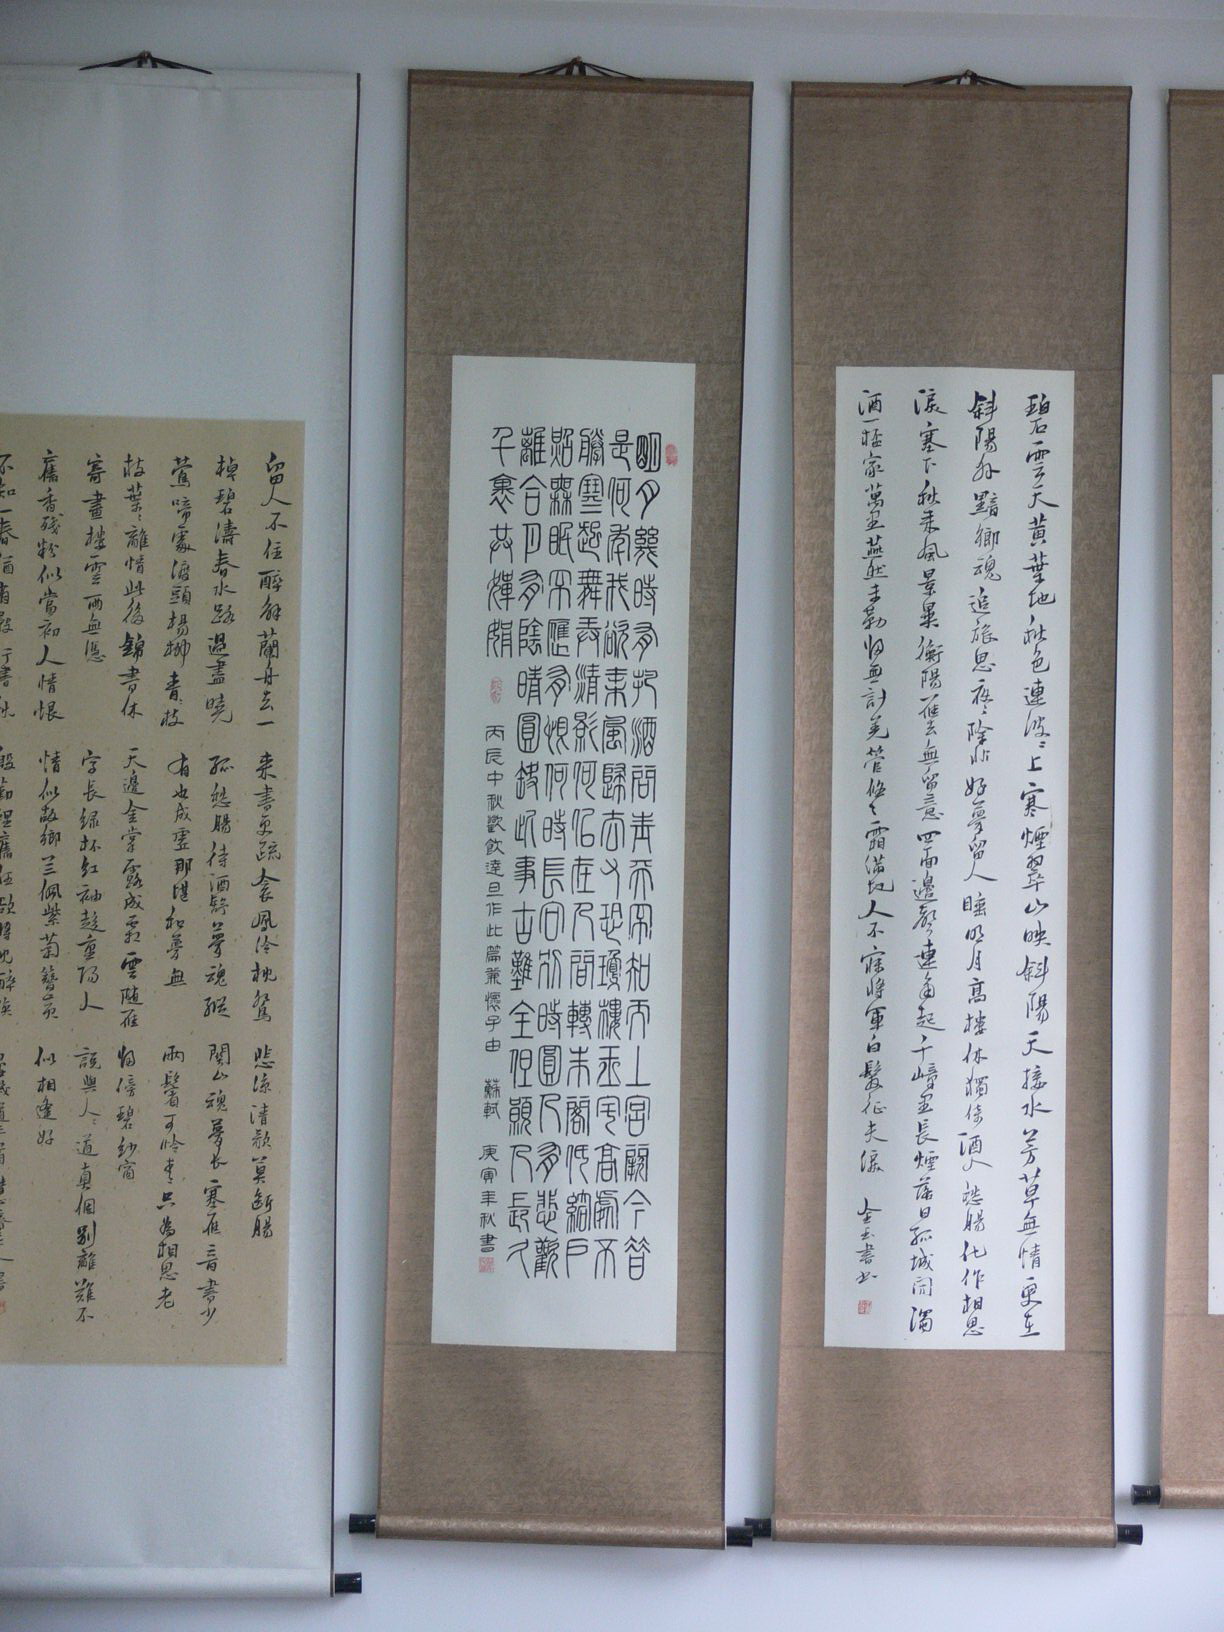 碧雲天黃葉地秋色連波〻上寒煙翠山映斜陽天接水芳草無情更在
斜陽外黯鄉魂追旅思夜〻除非好夢留人睡明月高樓休獨倚酒入愁腸化作相思
淚塞下秋來風景異衡陽雁去無留意四面邊聲連角起千嶂里長煙落日孤城閉濁
酒一杯家萬里燕然未勒歸無計羌管悠〻霜滿地人不寐將軍白髮征夫淚
明月幾時有把酒問青天不知天上宮闕今昔
是何年我欲乘風歸去又恐瓊樓玉宇高處不
勝寒起舞弄清影何佀在人間轉朱閣低綺戶
照無眠不應有恨何時長向別時圓人有悲歡
離合月有陰晴圓缺此事古難全但願人長久
千里共嬋娟
丙辰中秋歡飲達旦作此篇兼懷子由 蘇軾 庚寅年秋書
留人不住醉解蘭舟去一
棹碧濤春水路過盡曉
鶯啼處渡頭楊柳青〻枝
枝葉〻離情此後錦書休
寄畫樓雲雨無憑
舊香殘粉似當初人情恨
不如一春猶有數行書秋
來書更疏衾鳳冷枕鴛
孤愁腸待酒舒夢魂縱
有也成虛那堪和夢無
天邊金掌露成霜雲隨雁
字長綠杯紅袖趁重陽人
情似故鄉蘭佩紫菊簪黃
殷勤理舊狂欲將沉醉換
悲涼清歌莫斷腸
關山魂夢長塞雁音書少
兩鬢可憐青只為相思老
歸傍碧紗窗
說與人〻道真個別離難不
似相逢好